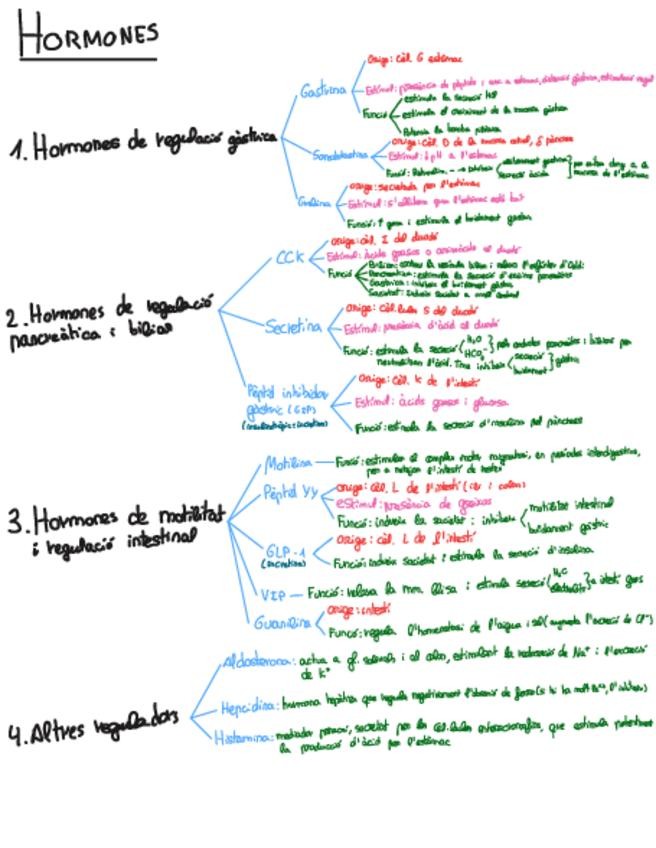 HORMONES
1. Hormones de regulació gàstrica
Gastrina
Orige: cèl. G estómac
Estímul: presència de pèptids i
Funció
estimula la secreció HCl
estimula el creixement de la mucosa gàstrica
Potencia la bomba
Somatostatina
Orige: cèl. D de la mucosa antral, páncrees
Estímul: ↓pH a l'estómac
Funció:
buidament gàstric
secreció àcida
Grelina
Orige: secretada per l'estómac
Estímul: s'allibera quan l'estómac està buit
Funció: ↑ gana i estimula el buidament gàstric
2. Hormones de regulació
pancreàtica i biliar
CCK
Orige: cèl. I del duodè
Estímul: àcids grassos o aminoàcids al duodè
Funció
Pancreàtica: estimula la secreció d'enzims pancreàtics
Gàstrica: inhibeix el buidament gàstric
Sacietat: indueix sacietat a nivell central
Secretina
Orige: cèl·lules S del duodè
Estímul: presència d'àcid al duodè
Funció: estimula la secreció H₂O HCO₃⁻ pels conductes pancreàtics i biliars per
neutralitzar l'àcid. Tmb inhibeix secreció buidament gàstric
Pèptid inhibidor
gàstric (GIP)
Orige: cèl. K de l'intestí
Estímul: àcids grassos i glucosa
Funció: estimula la secreció d'insulina pel páncrees
3. Hormones de motilitat
i regulació intestinal
Motilina
Funció: estimular el complex motor migratori, en períodes interdigestius,
per a netejar l'intestí de restes
Pèptid YY
Orige: cèl. L de l'intestí (ili i colon)
estímul: presència de greixos
Funció: indueix la sacietat i inhibeix
motilitat intestinal
buidament gàstric
GLP-1
(incretina)
Orige: cèl. L de l'intestí
Funció: indueix sacietat i estimula la secreció d'insulina
VIP
Funció: relaxa la mm. llisa i estimula secreció
Guanilina
Orige: intestí
Funció: regula l'homeostasi de l'aigua i sal (augmenta l'excreció de Cl⁻)
4. Altres reguladors
Aldosterona: actua a gl. salivals i al colon, estimulant la reabsorció de Na⁺ i l'excreció
de K⁺
Hepcidina: hormona hepàtica que regula negativament
Histamina: mediador paracrí, secretat per les cèl·lules enterocromafins, que estimula potentment
la producció d'àcid per l'estómac